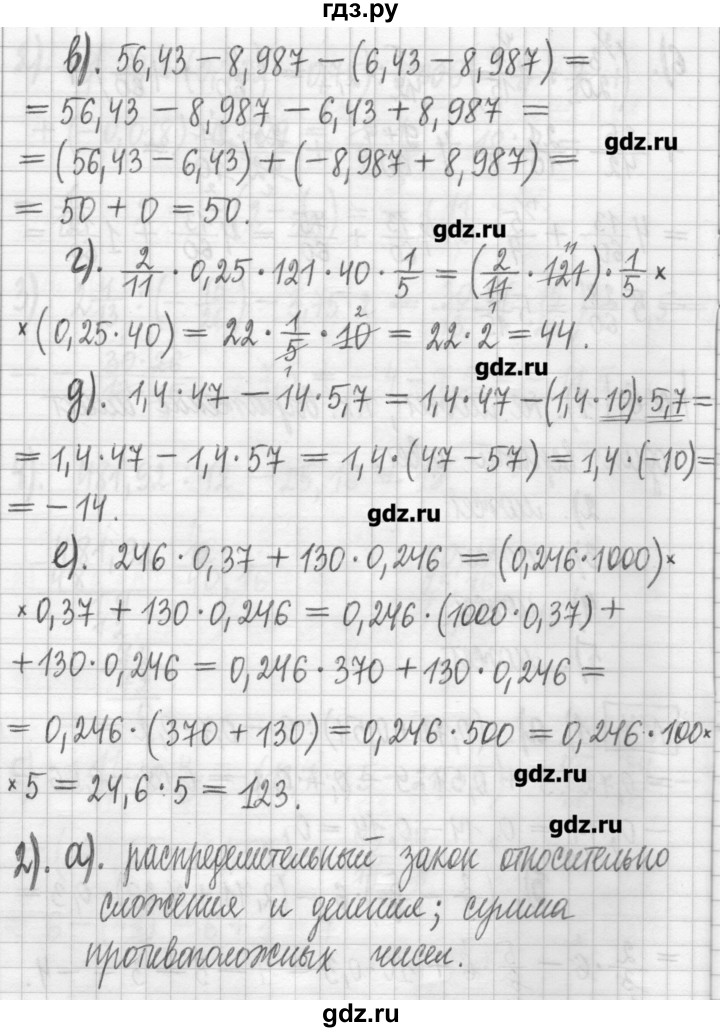 гдз.ру
в). 56,43 – 8,987 – (6,43 – 8,987) =
= 56,43 – 8,987 – 6,43 + 8,987 =
gdz.ru
= (56,43 – 6,43) + (– 8,987 + 8,987) =
= 50 + 0 = 50.
gdz.ru
г). 2/11 · 0,25 · 121 · 40 · 1/5 = (2/11 · 121 11) · 1/5 ×
× (0,25 · 40) = 22 · 1/5 1 · 10 2 = 22 · 2 = 44.
gdz.ru
д). 1,4 · 47 – 14 · 5,7 = 1,4 · 47 – (1,4 · 10) · 5,7 =
= 1,4 · 47 – 1,4 · 57 = 1,4 · (47 – 57) = 1,4 · (–10) =
= – 14.
gdz.ru
е). 246 · 0,37 + 130 · 0,246 = (0,246 · 1000) ×
× 0,37 + 130 · 0,246 = 0,246 · (1000 · 0,37) +
+ 130 · 0,246 = 0,246 · 370 + 130 · 0,246 =
= 0,246 · (370 + 130) = 0,246 · 500 = 0,246 · 100 ×
× 5 = 24,6 · 5 = 123.
gdz.ru
gdz.ru
2). а). распределительный закон относительно
сложения и деления; сумма
противоположных чисел.
gdz.ru